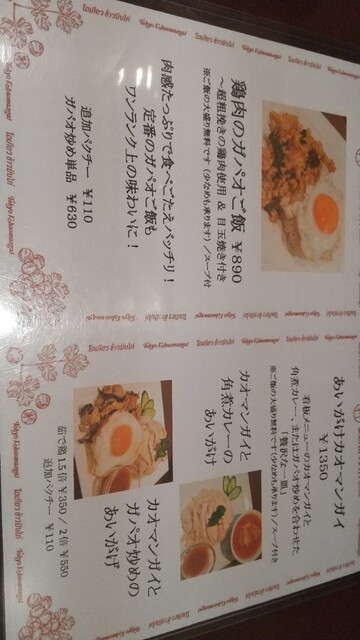 鶏肉のガパオご飯 ¥890
～超粗挽きの鶏肉使用 & 目玉焼き付き
※ご飯の大盛り無料です(少なめも承ります)/スープ付
肉感たっぷりで食べごたえバッチリ！
定番のガパオご飯も
ワンランク上の味わいに！
追加パクチー ¥110
ガパオ炒め単品 ¥630
あいがけカオマンガイ
¥1350
看板メニューのカオマンガイと
角煮カレー、またはガパオ炒めを合わせた
「贅沢な一皿」
※ご飯の大盛り無料です(少なめも承ります)/スープ付き
カオマンガイと
角煮カレーの
あいがけ
カオマンガイと
ガパオ炒めの
あいがけ
茹で鶏 1.5倍 ¥350 / 2倍 ¥550
追加パクチー ¥110
Tokyo Kaomangai